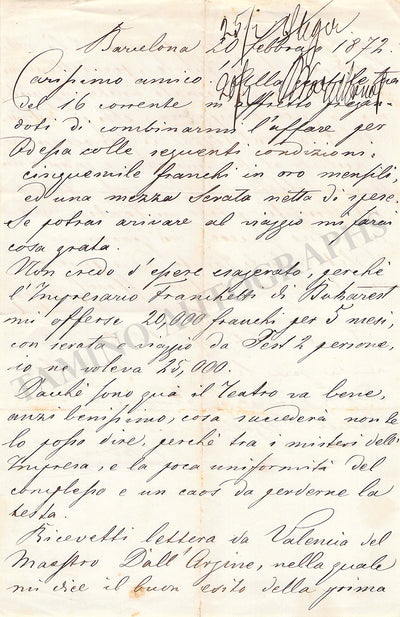 25/2
Barcelona 20 febbraio 1872.
Carissimo amico
del 16 corrente m'affretto pregan-
doti di combinarmi l'affare per
Odessa colle seguenti condizioni,
cinquemile franchi in oro mensili,
ed una mezza serata netta di spese.
Se potrai arivare al viaggio mi farai
cosa grata.
Non credo d'essere esagerato, perchè
l'Impresario Franchetti di Bukarest
mi offerse 20,000 franchi per 5 mesi,
con serata viaggio da Pest 2 persone,
io ne voleva 25,000.
Dacchè sono quà il Teatro va bene,
anzi benissimo, cosa succederà non te
lo posso dire, perchè tra i misteri dell'
Impresa, e la poca uniformità del
complesso e un caos da perderne la
testa.
Ricevetti lettera da Valencia del
Maestro Dall'Argine, nella quale
mi dice il buon esito della prima
TAMINO AUTOGRAPHS